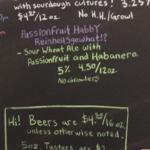 with sourdough cultures! 3.25%
$4.25/12oz No H.H./Growl
Passionfruit Habby
Reinheitsgewhat!?
- Sour Wheat Ale with
Passionfruit and Habanero
5% 4.50/12oz
No Growlers
Hi! Beers are $4.25/16 oz
unless otherwise noted.
5oz. Tasters are $2